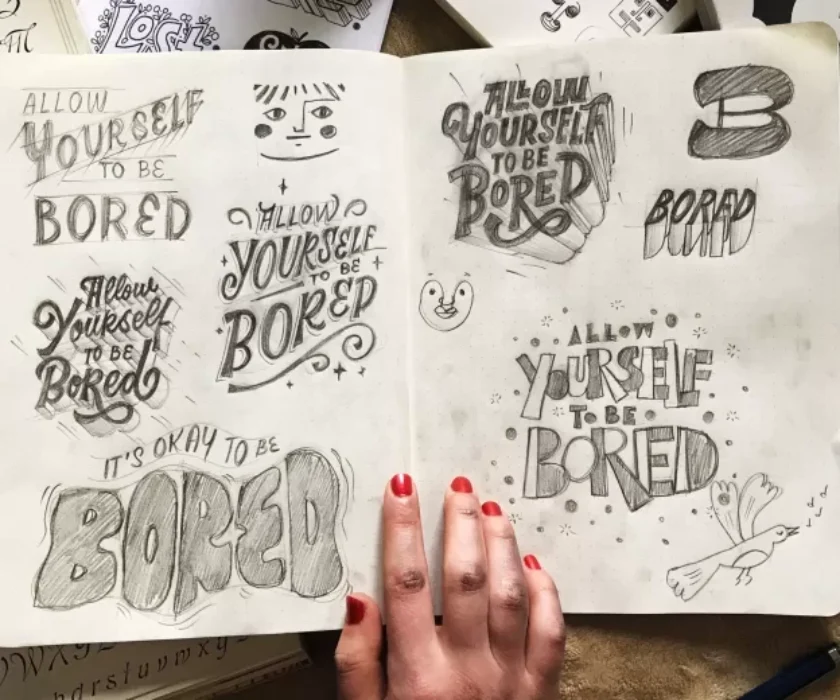 LOOSEN
ALLOW
YOURSELF
TO BE
BORED
ALLOW
YOURSELF
TO BE
BORED
Allow
Yourself
TO BE
Bored
IT'S OKAY TO BE
BORED
ALLOW
YOURSELF
TO BE
BORED
B
BORED
ALLOW
YOURSELF
TO BE
BORED
r s t u v w x y